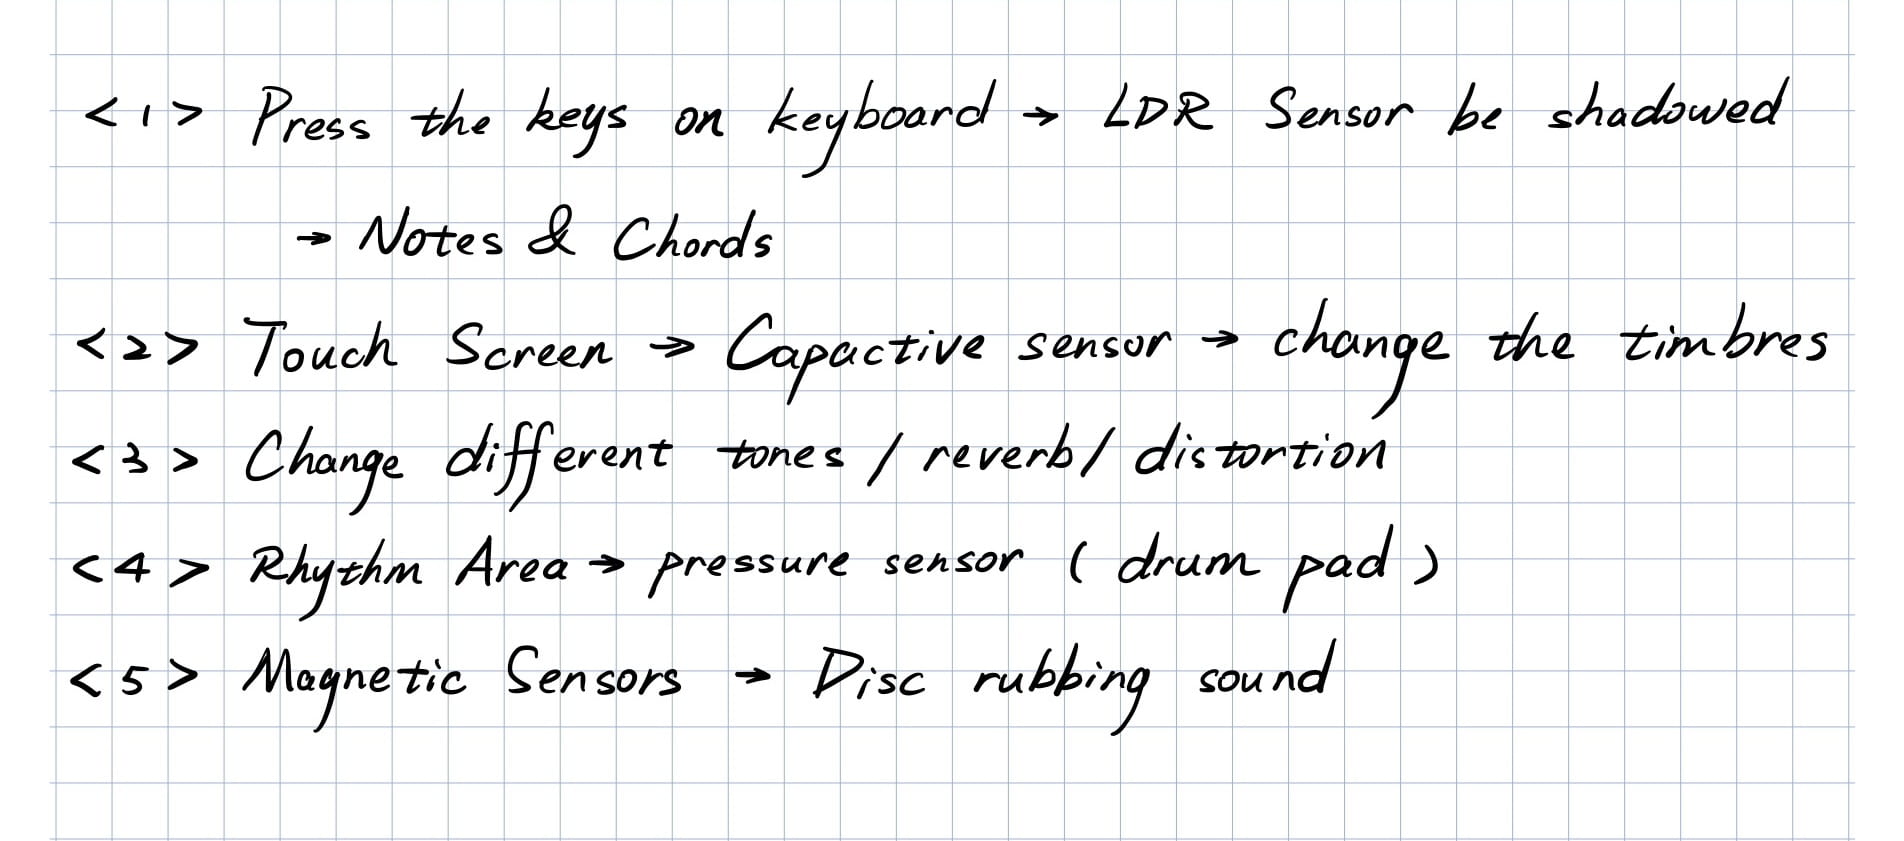 <1> Press the keys on keyboard → LDR Sensor be shadowed
→ Notes & Chords
<2> Touch Screen → Capactive sensor → change the timbres
<3> Change different tones / reverb / distortion
<4> Rhythm Area → pressure sensor ( drum pad )
<5> Magnetic Sensors → Disc rubbing sound